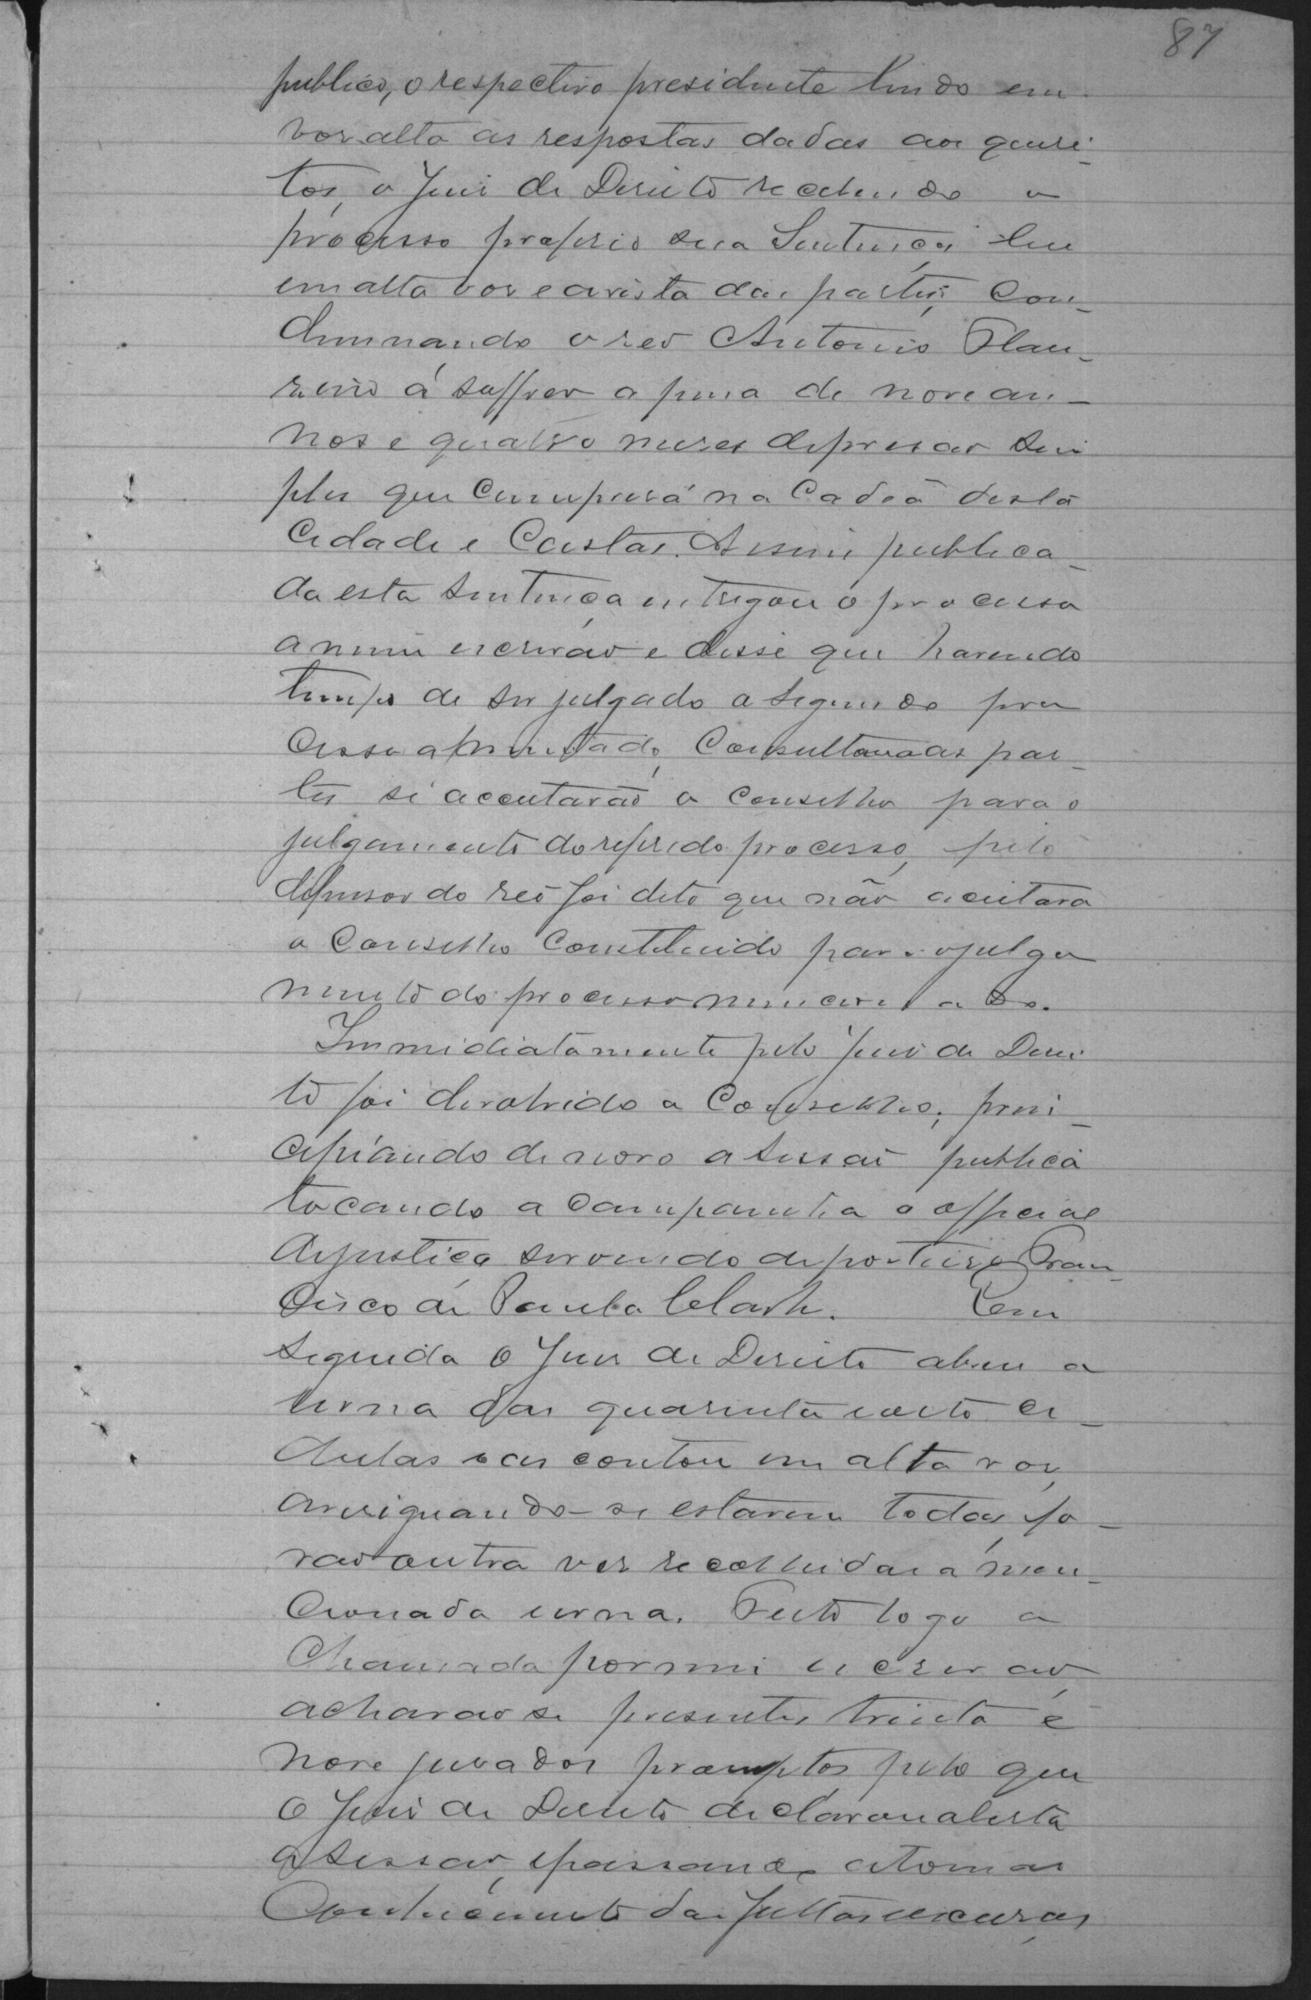 87
publico, o respectivo presidente lendo em
voz alta as respostas dadas aos quesi-
tos, o Juiz de Direito recebendo o
processo proferio sua Sentença leu
em alta voz e a vista das partes, con-
demnando o reo Antonio
á soffrer a pena de nove an-
nos e quatro meses de prisao sim
ples que cumprirá na Cadeã desta
Cidade e Custas. Assim publica-
da esta Sentença entregou o processo
a mim escrivão e disse que havendo
tempo de ser julgado a segundo pro
cesso apresentado, Consultava as par-
tes si aceitarão o conselho para o
julgamento do referido processo, pelo
defensor do reo foi dito que não aceitava
o Conselho Constituido para o julga
mento do processo mencionado.
Immidiatamente pelo Juiz de Direi
to foi devolvido o Conselho, prin-
cipiando de novo a sessaõ publica
tocando a campainha o official
de justiça servindo de porteiro Fran-
cisco de Paula Em
seguida o Juiz de Direito abriu a
urna das quarenta e oito ce-
dulas e as contou em alta voz,
averiguando-se estarem todas, fo-
rão outra vez recolhidas a men-
cionada urna. Feito logo a
Chamada por mim escrivão,
acharão se presentes trinta e
nove jurados promptos pelo que
o Juiz de Direito declarou aberta
a sessão, e passando a tomar
Conhecimento das faltas e escusas